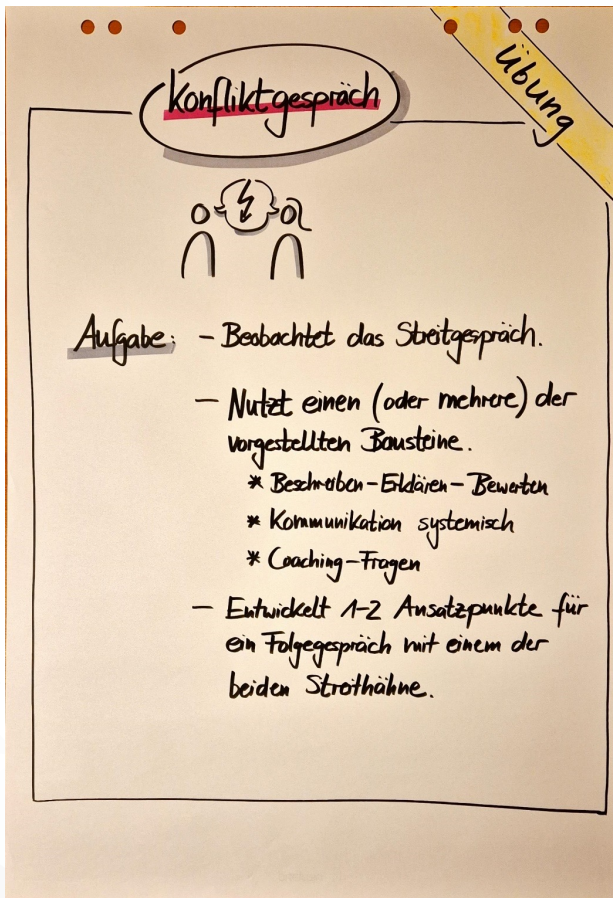 Übung
Konfliktgespräch
Aufgabe: – Beobachtet das Streitgespräch.
– Nutzt einen (oder mehrere) der
vorgestellten Bausteine.
* Beschreiben-Erklären-Bewerten
* Kommunikation systemisch
* Coaching-Fragen
– Entwickelt 1-2 Ansatzpunkte für
ein Folgegespräch mit einem der
beiden Streithähne.